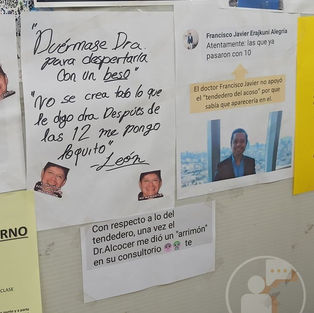 "Duérmase Dra.
para despertarla
con un beso"
"No se crea todo lo que
le digo dra. Después de
las 12 me pongo
loquito"
León
Francisco Javier Erajkuni Alegría
Atentamente: las que ya
pasaron con 10
El doctor Francisco Javier no apoyó
el "tendedero del acoso" por que
sabía que aparecería en el.
Con respecto a lo del
tendedero, una vez el
Dr.Alcocer me dió un "arrimón"
en su consultorio te
ERNO
CLASE